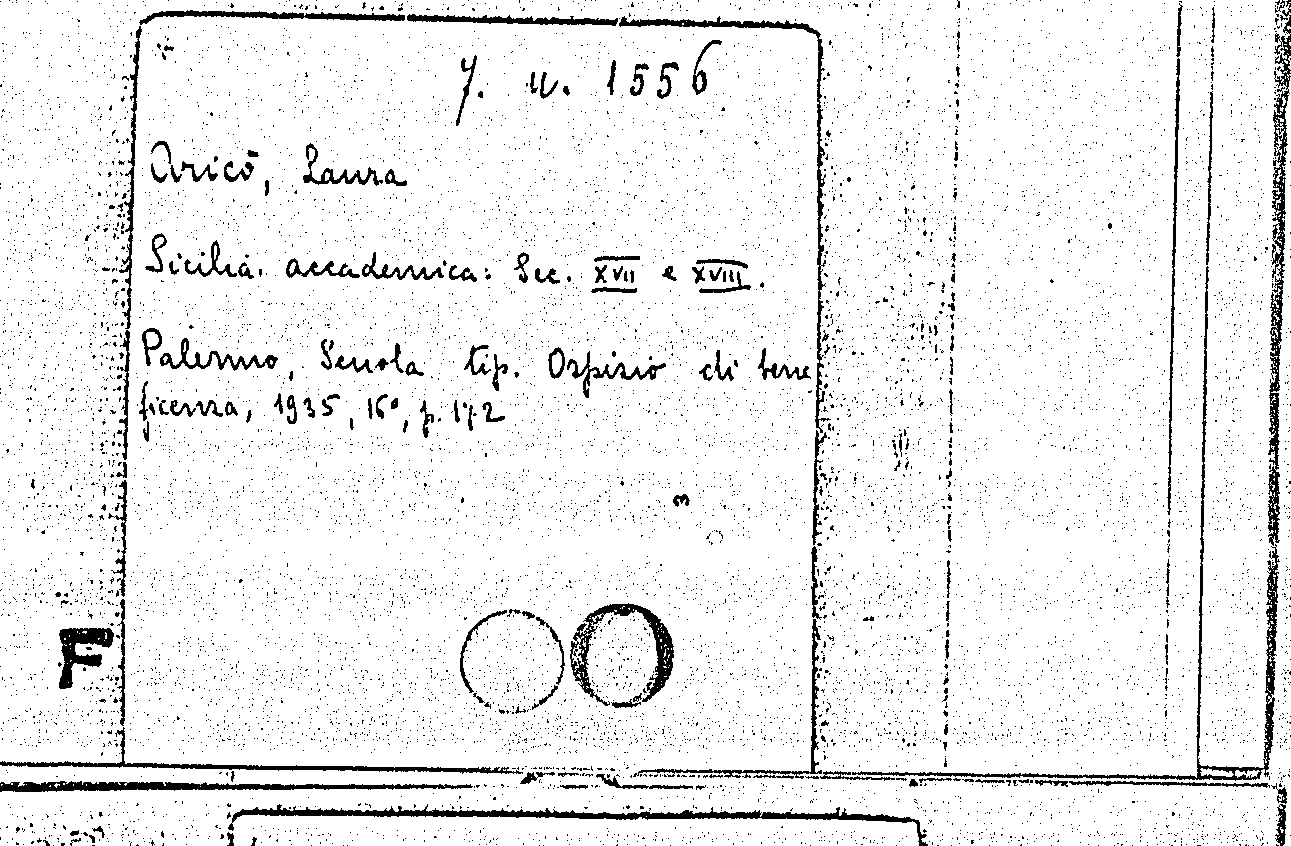 7. u. 1556
Aricò, Laura
Sicilia accademica: Sec. XVII e XVIII.
Palermo, Scuola tip. Ospizio di bene
ficenza, 1935, 16°, p. 172
3
F